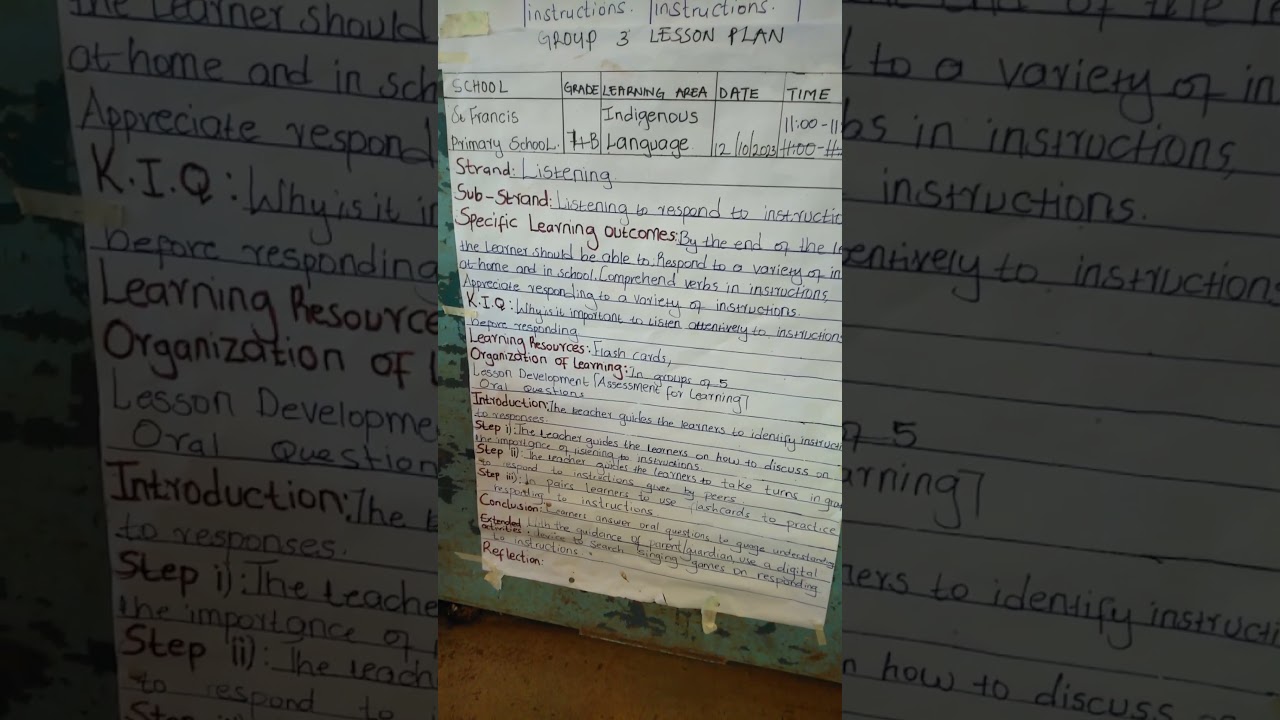 instructions. instructions.
GROUP 3 LESSON PLAN
SCHOOL GRADE LEARNING AREA DATE TIME
St Francis Indigenous 11:00-11:
Primary School. B Language 12/10/2023 11:00-11:
Strand: Listening.
Sub-Strand: Listening to respond to instructio
Specific Learning outcomes: By the end of the le
the learner should be able to. Respond to a variety of in
at home and in school. Comprehend verbs in instructions,
Appreciate responding to a variety of instructions.
K.I.Q: Why is it important to listen attentively to instructions
before responding
Learning Resources: Flash cards,
Organization of Learning: In groups of 5
Lesson Development [Assessment for Learning]
Oral Questions
Introduction: The teacher guides the learners to identify instructi
to responses.
Step i): The teacher guides the learners on how to discuss on
the importance of listening to instructions.
Step ii): The teacher guides the learners to take turns in grou
to respond to instructions given by peers
Step iii): In pairs learners to use flashcards to practice
responding to instructions
Conclusion: Learners answer oral questions to guage understanding
Extended With the guidance of parent/guardian, use a digital
activities: device to search singing games on responding
to instructions.
Reflection: